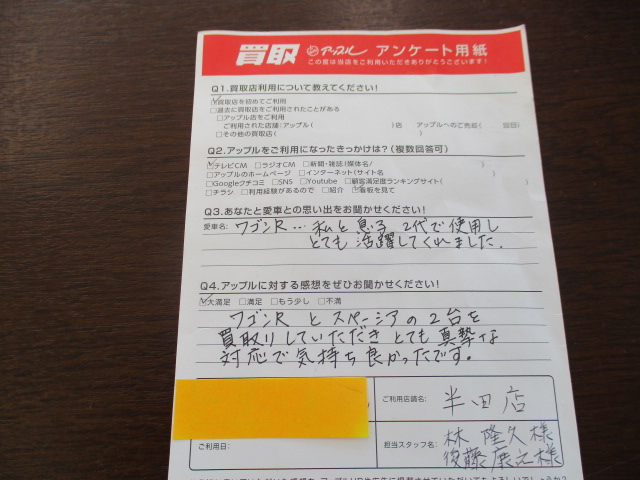 買取 アップル アンケート用紙
この度は当店をご利用いただきありがとうございます!
Q1.買取店利用について教えてください!
☑買取店を初めてご利用
□過去に買取店をご利用されたことがある
□アップル店をご利用
ご利用された店舗:アップル( )店 アップルへのご売却( 回目)
□その他の買取店( )
Q2.アップルをご利用になったきっかけは?(複数回答可)
☑テレビCM □ラジオCM □新聞・雑誌(媒体名/ )
□アップルのホームページ □インターネット(サイト名 )
□Googleクチコミ □SNS □Youtube □顧客満足度ランキングサイト( )
□チラシ □利用経験があるので □紹介 ☑看板を見て
Q3.あなたと愛車との思い出をお聞かせください!
愛車名/ ワゴンR…私と息子 2代で使用し
とても活躍してくれました.
Q4.アップルに対する感想をぜひお聞かせください!
☑大満足 □満足 □もう少し □不満
ワゴンRとスペーシアの2台を
買取りしていただきとても真摯な
対応で気持ち良かったです。
ご利用店舗名: 半田店
ご利用日:
担当スタッフ名: 林 隆久様
後藤 様